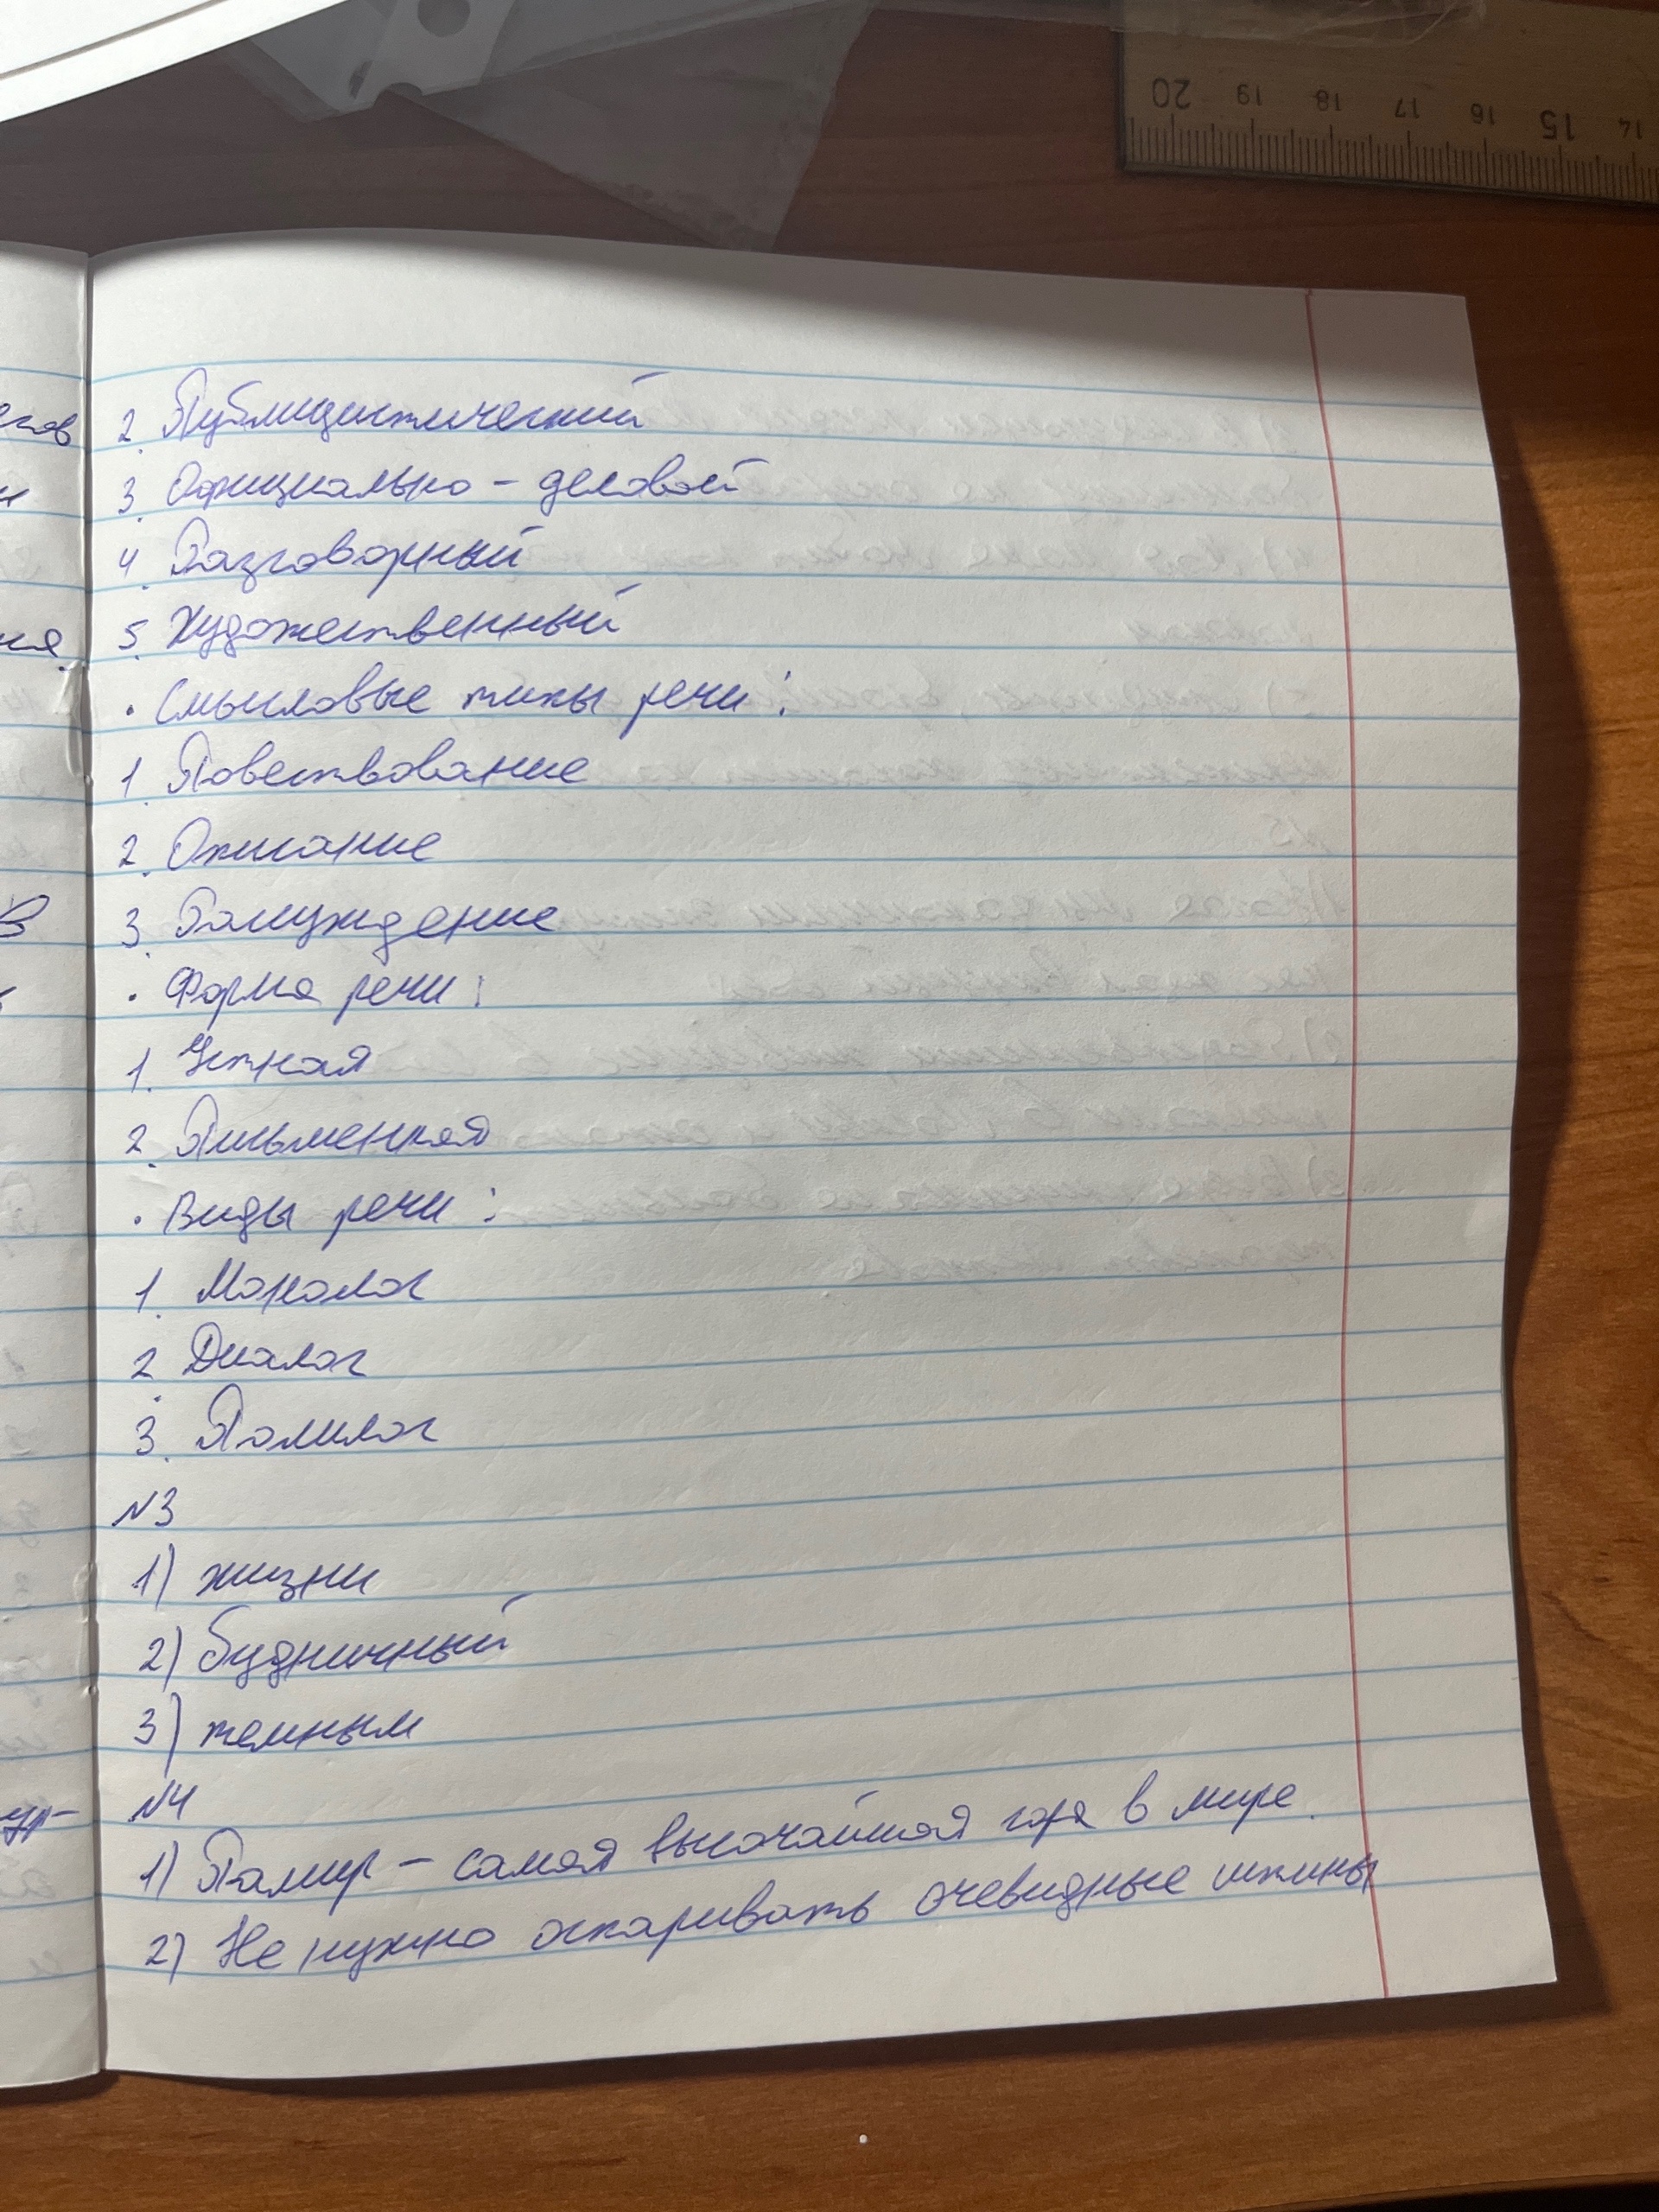 2. Публицистический
3. Официально - деловой
4. Разговорный
5. Художественный
. Смысловые типы речи:
1. Повествование
2. Описание
3. Рассуждение
. Форма речи:
1. Устная
2. Письменная
. Виды речи:
1. Монолог
2. Диалог
3. Полилог
№3
1) жизни
2) будничный
3) темным
№4
1) Памир - самая высочайшая гора в мире.
2) Не нужно оспаривать очевидные истины
20 19 18 17 16 15 14